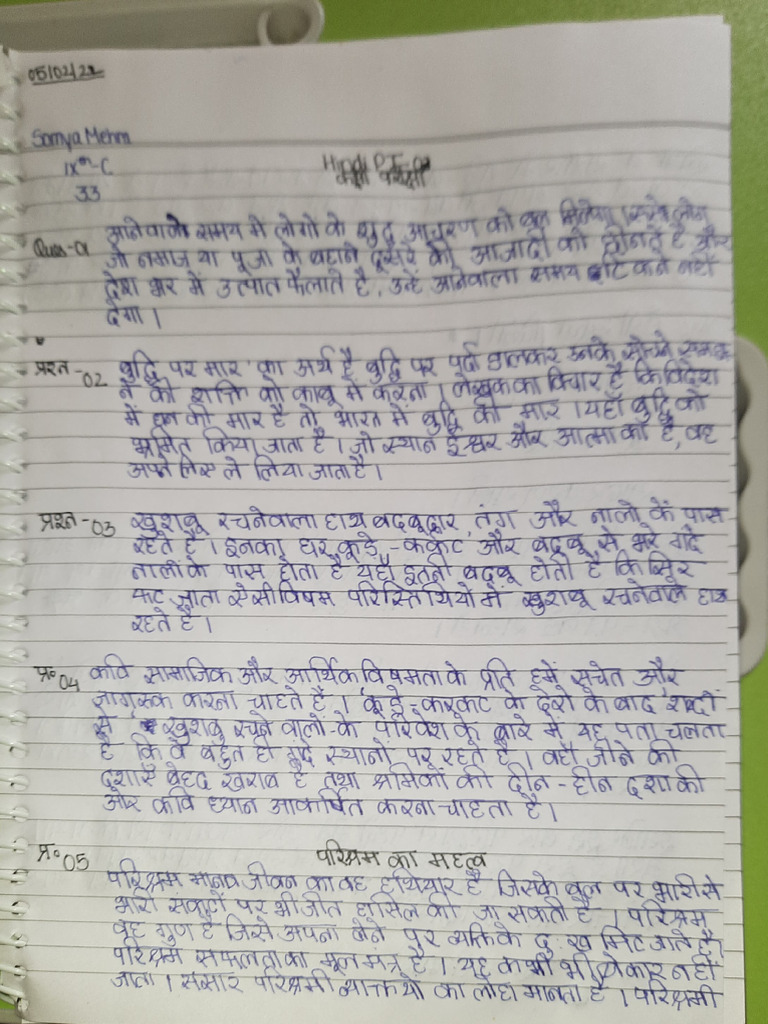 05/02/22
Somya Mehra
IXth-C
33
Hindi PT-
Ques-01 आनेवाले समय में लोगो के शुद्ध आचरण को बल मिलेगा। ऐसे लोग
जो नमाज या पूजा के बहाने दूसरे की आजादी को छीनते है और
देश भर में उत्पात फैलाते है, उन्हें आनेवाला समय टिकने नहीं
देगा।
प्रश्न-02 बुद्धि पर मार' का अर्थ है बुद्धि पर पर्दा डालकर उनके सोचने समझ
ने की शक्ति को काबू में करना। लेखक का विचार है कि विदेश
में धन की मार है तो भारत में बुद्धि की मार। यहाँ बुद्धि को
भ्रमित किया जाता है। जो स्थान ईश्वर और आत्मा का है, वह
अपने लिए ले लिया जाता है।
प्रश्न-03 खुशबू रचनेवाला हाथ बदबूदार, तंग और नालो के पास
रहते है। इनका घर कूड़े-कर्कट और बदबू से भरे गंदे
नालों के पास होता है यहाँ इतनी बदबू होती है कि सिर
फट जाता ऐसी विषम परिस्तिथियों में खुशबू रचनेवाले हाथ
रहते है।
प्र॰ 04 कवि सामाजिक और आर्थिक विषमता के प्रति हमें सचेत और
जागरूक करना चाहते है। 'कूड़े-करकट के ढेरो के बाद' शब्दों
से खुशबू रचने वालों के परिवेश के बारे में यह पता चलता
है कि वे बहुत ही गंदे स्थानो पर रहते है। वहाँ जीने की
दशाएँ बेहद खराब है तथा श्रमिकों की दीन-हीन दशा की
और कवि ध्यान आकर्षित करना चाहता है।
प्र॰ 05 परिश्रम का महत्व
परिश्रम मानव जीवन का वह हथियार है जिसके बल पर भारी से
भारी संकटों पर भी जीत हासिल की जा सकती है। परिश्रम
वह गुण है जिसे अपना लेने पर व्यक्ति के दुःख मिट जाते है।
परिश्रम सफलता का मूल मंत्र है। यह कभी भी बेकार नहीं
जाता। संसार परिश्रमी व्यक्तियो का लोहा मानता है। परिश्रमी